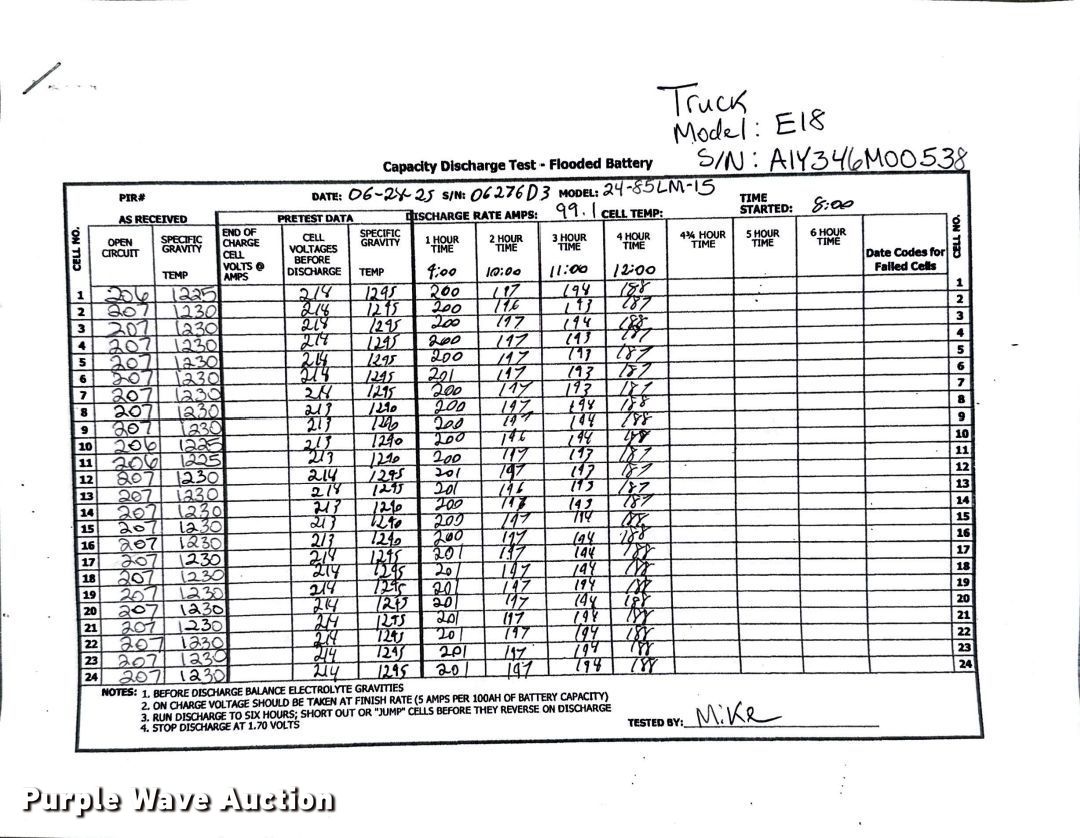 Truck
Model: E18
S/N: A1Y346M00538
Capacity Discharge Test - Flooded Battery
PIR# DATE: 06-24-25 S/N: 06276D3 MODEL: 24-85LM-15 TIME STARTED: 8:00
AS RECEIVED PRETEST DATA DISCHARGE RATE AMPS: 99.1 CELL TEMP:
CELL NO. OPEN CIRCUIT SPECIFIC GRAVITY TEMP END OF CHARGE CELL VOLTS @ AMPS CELL VOLTAGES BEFORE DISCHARGE SPECIFIC GRAVITY TEMP 1 HOUR TIME 2 HOUR TIME 3 HOUR TIME 4 HOUR TIME 4¾ HOUR TIME 5 HOUR TIME 6 HOUR TIME Date Codes for Failed Cells CELL NO.
9:00 10:00 11:00 12:00
1 206 1225 214 1295 200 197 194 188 1
2 207 1230 214 1295 200 196 193 187 2
3 207 1230 214 1295 200 197 194 188 3
4 207 1230 214 1295 200 197 193 187 4
5 207 1230 214 1295 200 197 193 187 5
6 207 1230 214 1295 201 197 193 187 6
7 207 1230 214 1295 200 197 193 187 7
8 207 1230 213 1290 200 197 194 188 8
9 207 1230 213 1290 200 197 194 188 9
10 206 1225 213 1290 200 196 194 188 10
11 206 1225 213 1290 200 197 193 187 11
12 207 1230 214 1295 201 197 193 187 12
13 207 1230 214 1295 201 196 193 187 13
14 207 1230 213 1290 200 193 187 14
15 207 1230 213 1290 200 197 194 188 15
16 207 1230 213 1290 200 197 194 188 16
17 207 1230 214 1295 201 197 194 188 17
18 207 1230 214 1295 201 197 194 188 18
19 207 1230 214 1295 201 197 194 188 19
20 207 1230 214 1295 201 197 194 188 20
21 207 1230 214 1295 201 197 194 188 21
22 207 1230 214 1295 201 197 194 188 22
23 207 1230 214 1295 201 197 194 188 23
24 207 1230 214 1295 201 197 194 188 24
NOTES: 1. BEFORE DISCHARGE BALANCE ELECTROLYTE GRAVITIES
2. ON CHARGE VOLTAGE SHOULD BE TAKEN AT FINISH RATE (5 AMPS PER 100AH OF BATTERY CAPACITY)
3. RUN DISCHARGE TO SIX HOURS; SHORT OUT OR "JUMP" CELLS BEFORE THEY REVERSE ON DISCHARGE
4. STOP DISCHARGE AT 1.70 VOLTS
TESTED BY: Mike
Purple Wave Auction